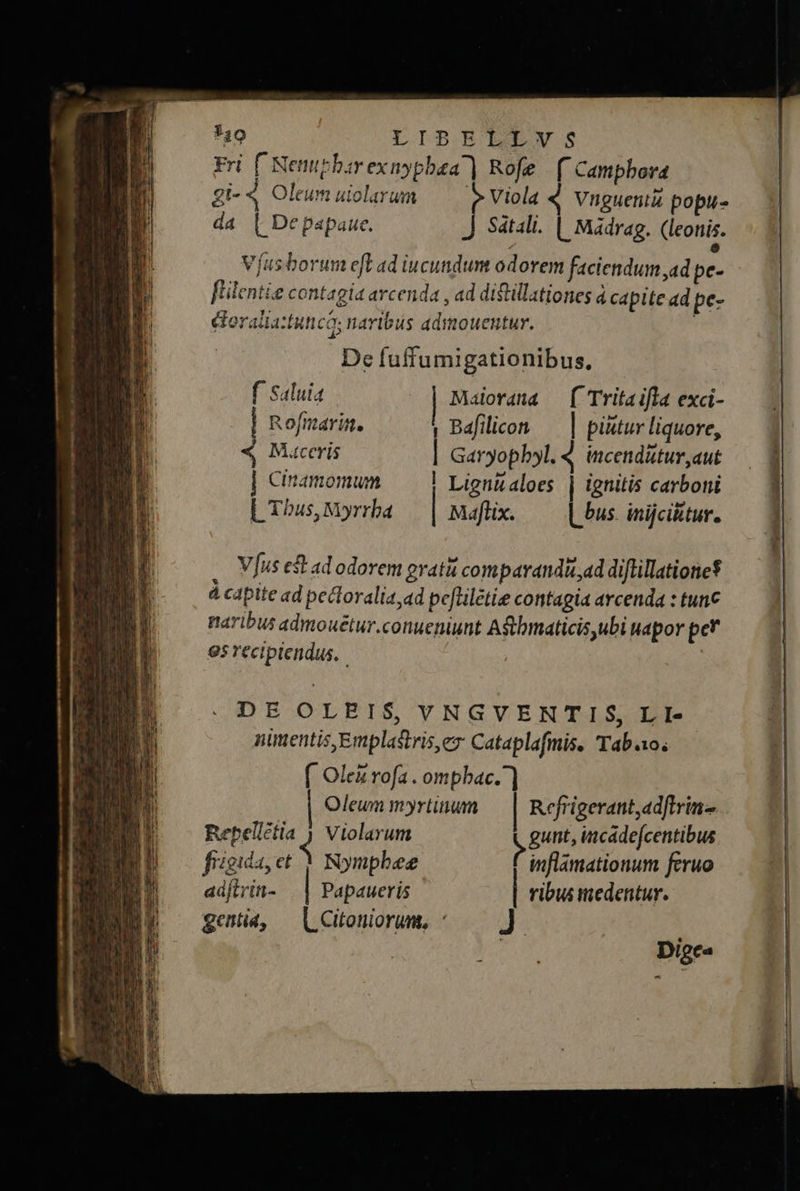 120 LIBELLVS
Fri { Nenuphar ex nyphæa } Rose { Camphora
gi- { Oleum uiolarum } Viola { Vnguentū popu-
da { De papaue. } Sātali. { Mādrag. (leonis.
Vsus horum est ad iucundum odorem faciendum, ad pe-
stilentiæ contagia arcenda, ad distillationes à capite ad pe-
ctoralia: tuncq; naribus admouentur.
De suffumigationibus.
{ Saluia | Maiorana { Trita ista exci-
{ Rosmarin. | Basilicon | piūtur liquore,
{ Maceris | Garyophyl. { incendūtur, aut
{ Cinamomum | Lignū aloes | ignitis carboni
{ Thus, Myrrha | Mastix. { bus inijciūtur.
Vsus est ad odorem gratū comparandū, ad distillationes
à capite ad pectoralia, ad pestilētiæ contagia arcenda: tunc
naribus admouētur. conueniunt Asthmaticis, ubi uapor per
os recipiendus.
DE OLEIS, VNGVENTIS, LI-
nimentis, Emplastris, & Cataplasmis. Tab.10.
{ Oleū rosa. omphac. }
| Oleum myrtinum | Refrigerant, adstrin-
Repellētia } Violarum { gunt, incādescentibus
frigida, et } Nymphææ { inflāmationum feruo
adstrin- | Papaueris | ribus medentur.
gentia, { Citoniorum. }
Dige-